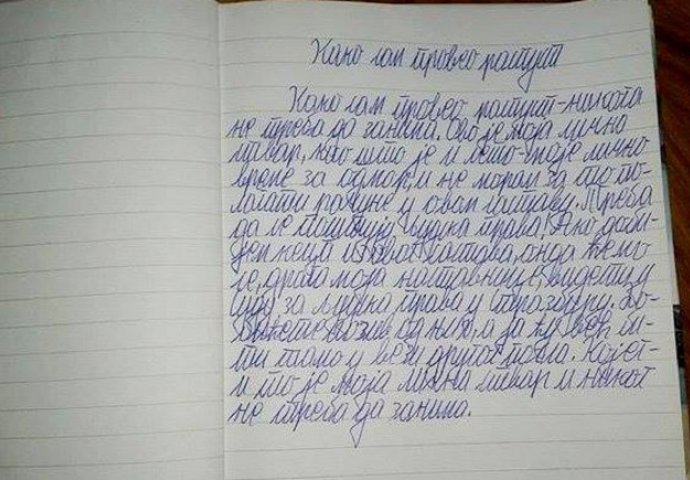 Како сам провео распуст
Како сам провео распуст-никога
не треба да занима. Ово је моја лична
ствар, као што је и лето-моје лично
време за одмор, и не морам за то по-
лагати рачуне у овом саставу. Треба
да се поштују људска права! Ако доби-
јем кеца из овог састава, онда ћемо
се, драга моја наставнице, видети у
суд за људска права у Стразбуру. До-
бићете позив од њих, а ја ћу већ би-
ти тамо у вези другог посла. Којег-
и то је моја лична ствар и никог
не треба да занима.